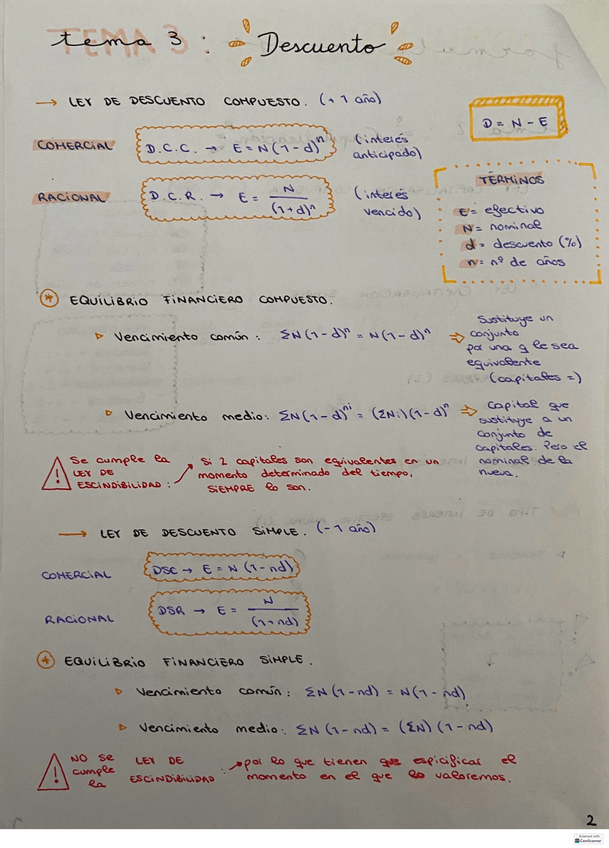 tema 3 : Descuento
→ LEY DE DESCUENTO COMPUESTO. (+ 1 año)
D = N - E
COMERCIAL
D.C.C. → E = N(1-d)^n
(interés
anticipado)
RACIONAL
D.C.R. → E = N / (1+d)^n
(interés
vencido)
TÉRMINOS
E = efectivo
N = nominal
d = descuento (%)
n = nº de años
* EQUILIBRIO FINANCIERO COMPUESTO.
▷ Vencimiento común : ΣN(1-d)^n = N(1-d)^n ⇒
Sustituye un
conjunto
por una q le sea
equivalente
(capitales =)
▷ Vencimiento medio: ΣN(1-d)^ni = (ΣNi)(1-d)^n ⇒
Capital que
sustituye a un
conjunto de
capitales. Pero el
nominal de la
nueva.
! Se cumple la
LEY DE
ESCINDIBILIDAD :
Si 2 capitales son equivalentes en un
momento determinado del tiempo,
SIEMPRE lo son.
→ LEY DE DESCUENTO SIMPLE. (- 1 año)
COMERCIAL
DSC → E = N (1-nd)
RACIONAL
DSR → E = N / (1+nd)
* EQUILIBRIO FINANCIERO SIMPLE.
▷ Vencimiento común : ΣN(1-nd) = N(1-nd)
▷ Vencimiento medio: ΣN(1-nd) = (ΣN)(1-nd)
! NO se
cumple
la
LEY DE
ESCINDIBILIDAD :
por lo que tienen que espicificar el
momento en el que lo valoremos.
2
Scanned with
CamScanner